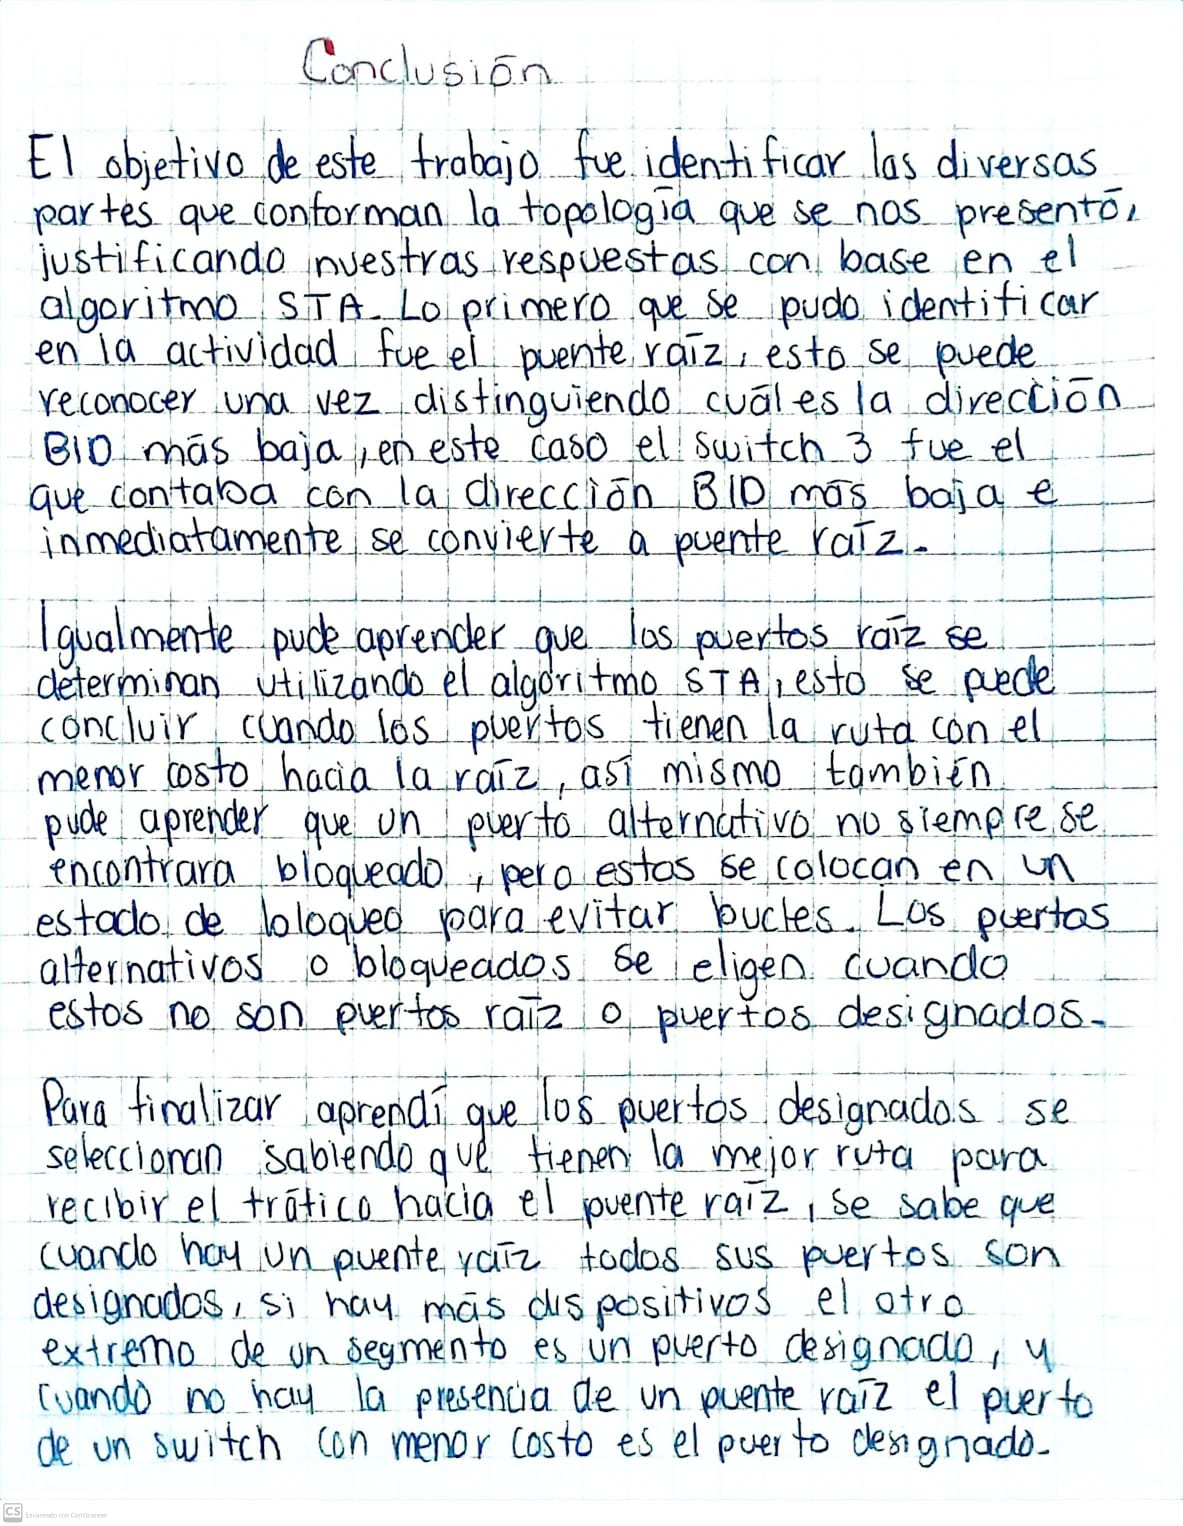 Conclusión
El objetivo de este trabajo fue identificar las diversas
partes que conforman la topología que se nos presentó,
justificando nuestras respuestas con base en el
algoritmo STA. Lo primero que se pudo identificar
en la actividad fue el puente raíz, esto se puede
reconocer una vez distinguiendo cuál es la dirección
BID más baja, en este caso el switch 3 fue el
que contaba con la dirección BID más baja e
inmediatamente se convierte a puente raíz.
Igualmente pude aprender que los puertos raíz se
determinan utilizando el algoritmo STA, esto se puede
concluir cuando los puertos tienen la ruta con el
menor costo hacia la raíz, así mismo también
pude aprender que un puerto alternativo no siempre se
encontrara bloqueado, pero estos se colocan en un
estado de bloqueo para evitar bucles. Los puertos
alternativos o bloqueados se eligen cuando
estos no son puertos raíz o puertos designados.
Para finalizar aprendí que los puertos designados se
seleccionan sabiendo que tienen la mejor ruta para
recibir el tráfico hacia el puente raíz, se sabe que
cuando hay un puente raíz todos sus puertos son
designados, si hay más dispositivos el otro
extremo de un segmento es un puerto designado, y
cuando no hay la presencia de un puente raíz el puerto
de un switch con menor costo es el puerto designado.
CS Escaneado con CamScanner